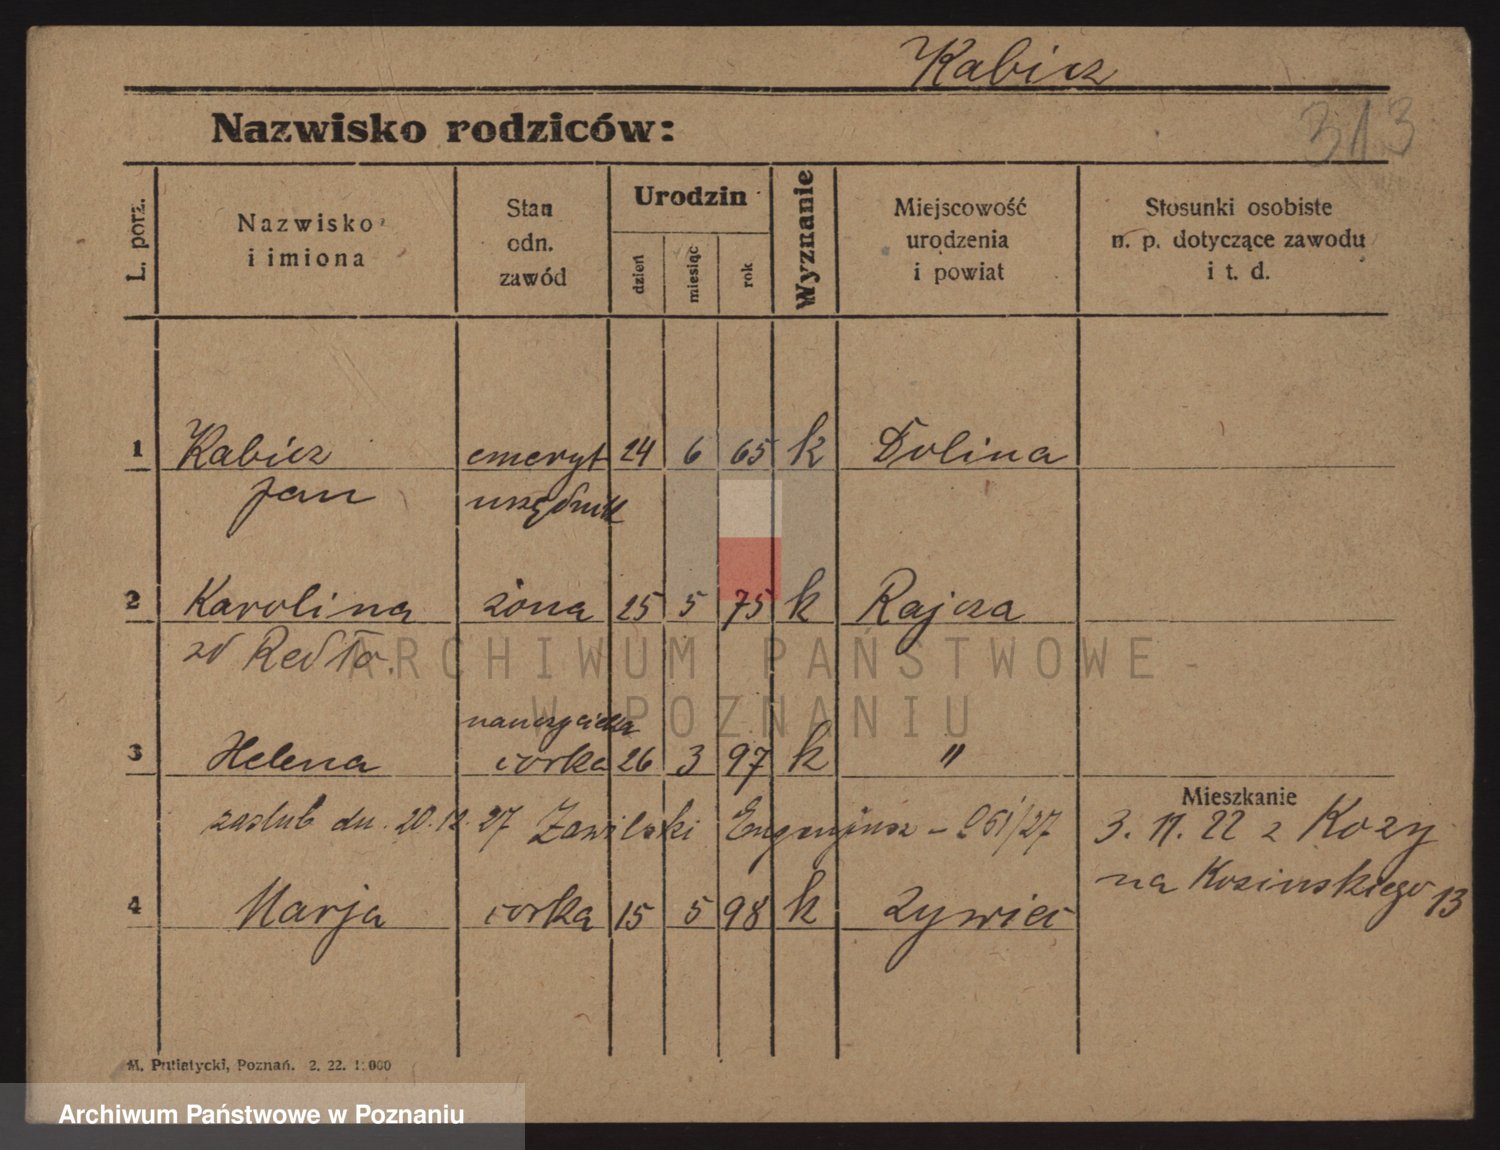 Kabicz
Nazwisko rodziców:
313
L. porz.
Nazwisko
i imiona
Stan
odn.
zawód
Urodzin
dzień
miesiąc
rok
Wyznanie
Miejscowość
urodzenia
i powiat
Stosunki osobiste
n. p. dotyczące zawodu
i t. d.
1 Kabicz emeryt 24 6 65 k Dolina
Jan urzędnik
2 Karolina żona 25 5 75 k Rajcza
zd Redło
ARCHIWUM PAŃSTWOWE
W POZNANIU
nauczycielka
3 Helena corka 26 3 97 k "
Mieszkanie
zaślub dn. 20.12.27 Zawilski Eugenjusz - 961/27
3. 11. 22 z Kozy
na Kosinskiego 13
4 Marja corka 15 5 98 k Zywiec
M. Putiatycki, Poznań. 2. 22. 1:000
Archiwum Państwowe w Poznaniu